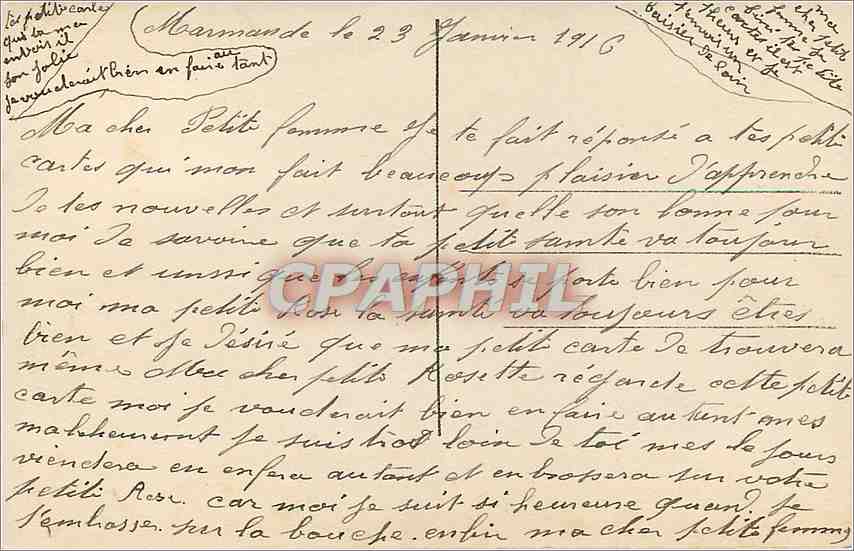 tes petite carte
que tu ma
envois il
son jolie
je vouderait bien en faire au tant
ma
cher petit
femme
cartes il est
t'envoi un
baisier de loin
Marmande le 23 Janvier 1916
Ma cher Petite femme Je te fait réponse a tes petite
cartes qui mon fait beaucoup plaisier d'apprendre
de tes nouvelles et surtout quelle son bonne pour
moi de savoire que ta petite santé va toujour
bien et aussi que se porte bien pour
moi ma petite Rose la santé va toujours êtres
bien et Je désiré que ma petite carte de trouvera
même Ma cher petite Rosette régarde cette petite
carte moi je vouderait bien en faire autant mes
malheureut je suis trot loin de toi mes le jours
viendera en enfera autant et enbrossera sur votre
petite Rose. car moi je suit si heureuse quand je
t'embasse. sur la bouche. enfin ma cher petite femme
CPAPHIL